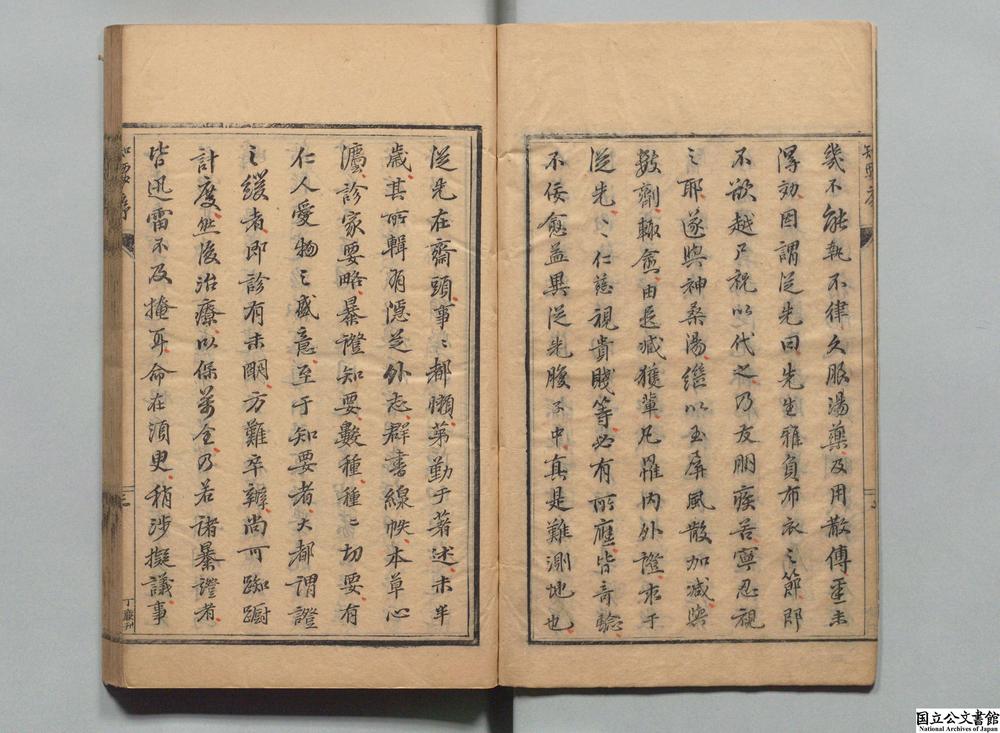 幾不能執不律久服湯藥及用散傅垩未
得効因謂從先曰先生雅負布衣之節即
不欲越尸祝以代之乃友朋疾苦寧忍視
之耶遂與神桑湯繼以玉屏風散加减與
數劑輒愈由是臧獲輩凡罹內外證求于
從先之仁慈視貴賤等必有所應皆奇騐
不佞愈益異從先腹不中真是難測地也
從先在齋頭事〻都懶苐勤于著述未半
歲其所輯有隱芝外志群書線帙本草心
診家要略暴證知要數種種〻切要有
仁人愛物之盛意至于知要者大都謂證
之緩者即診有未明方難卒辦尚可踟蹰
計度然後治療以保萬全乃若諸暴證者
皆迅雷不及掩耳命在須臾稍涉擬議事
知要序
丁應
国立公文書館
National Archives of Japan